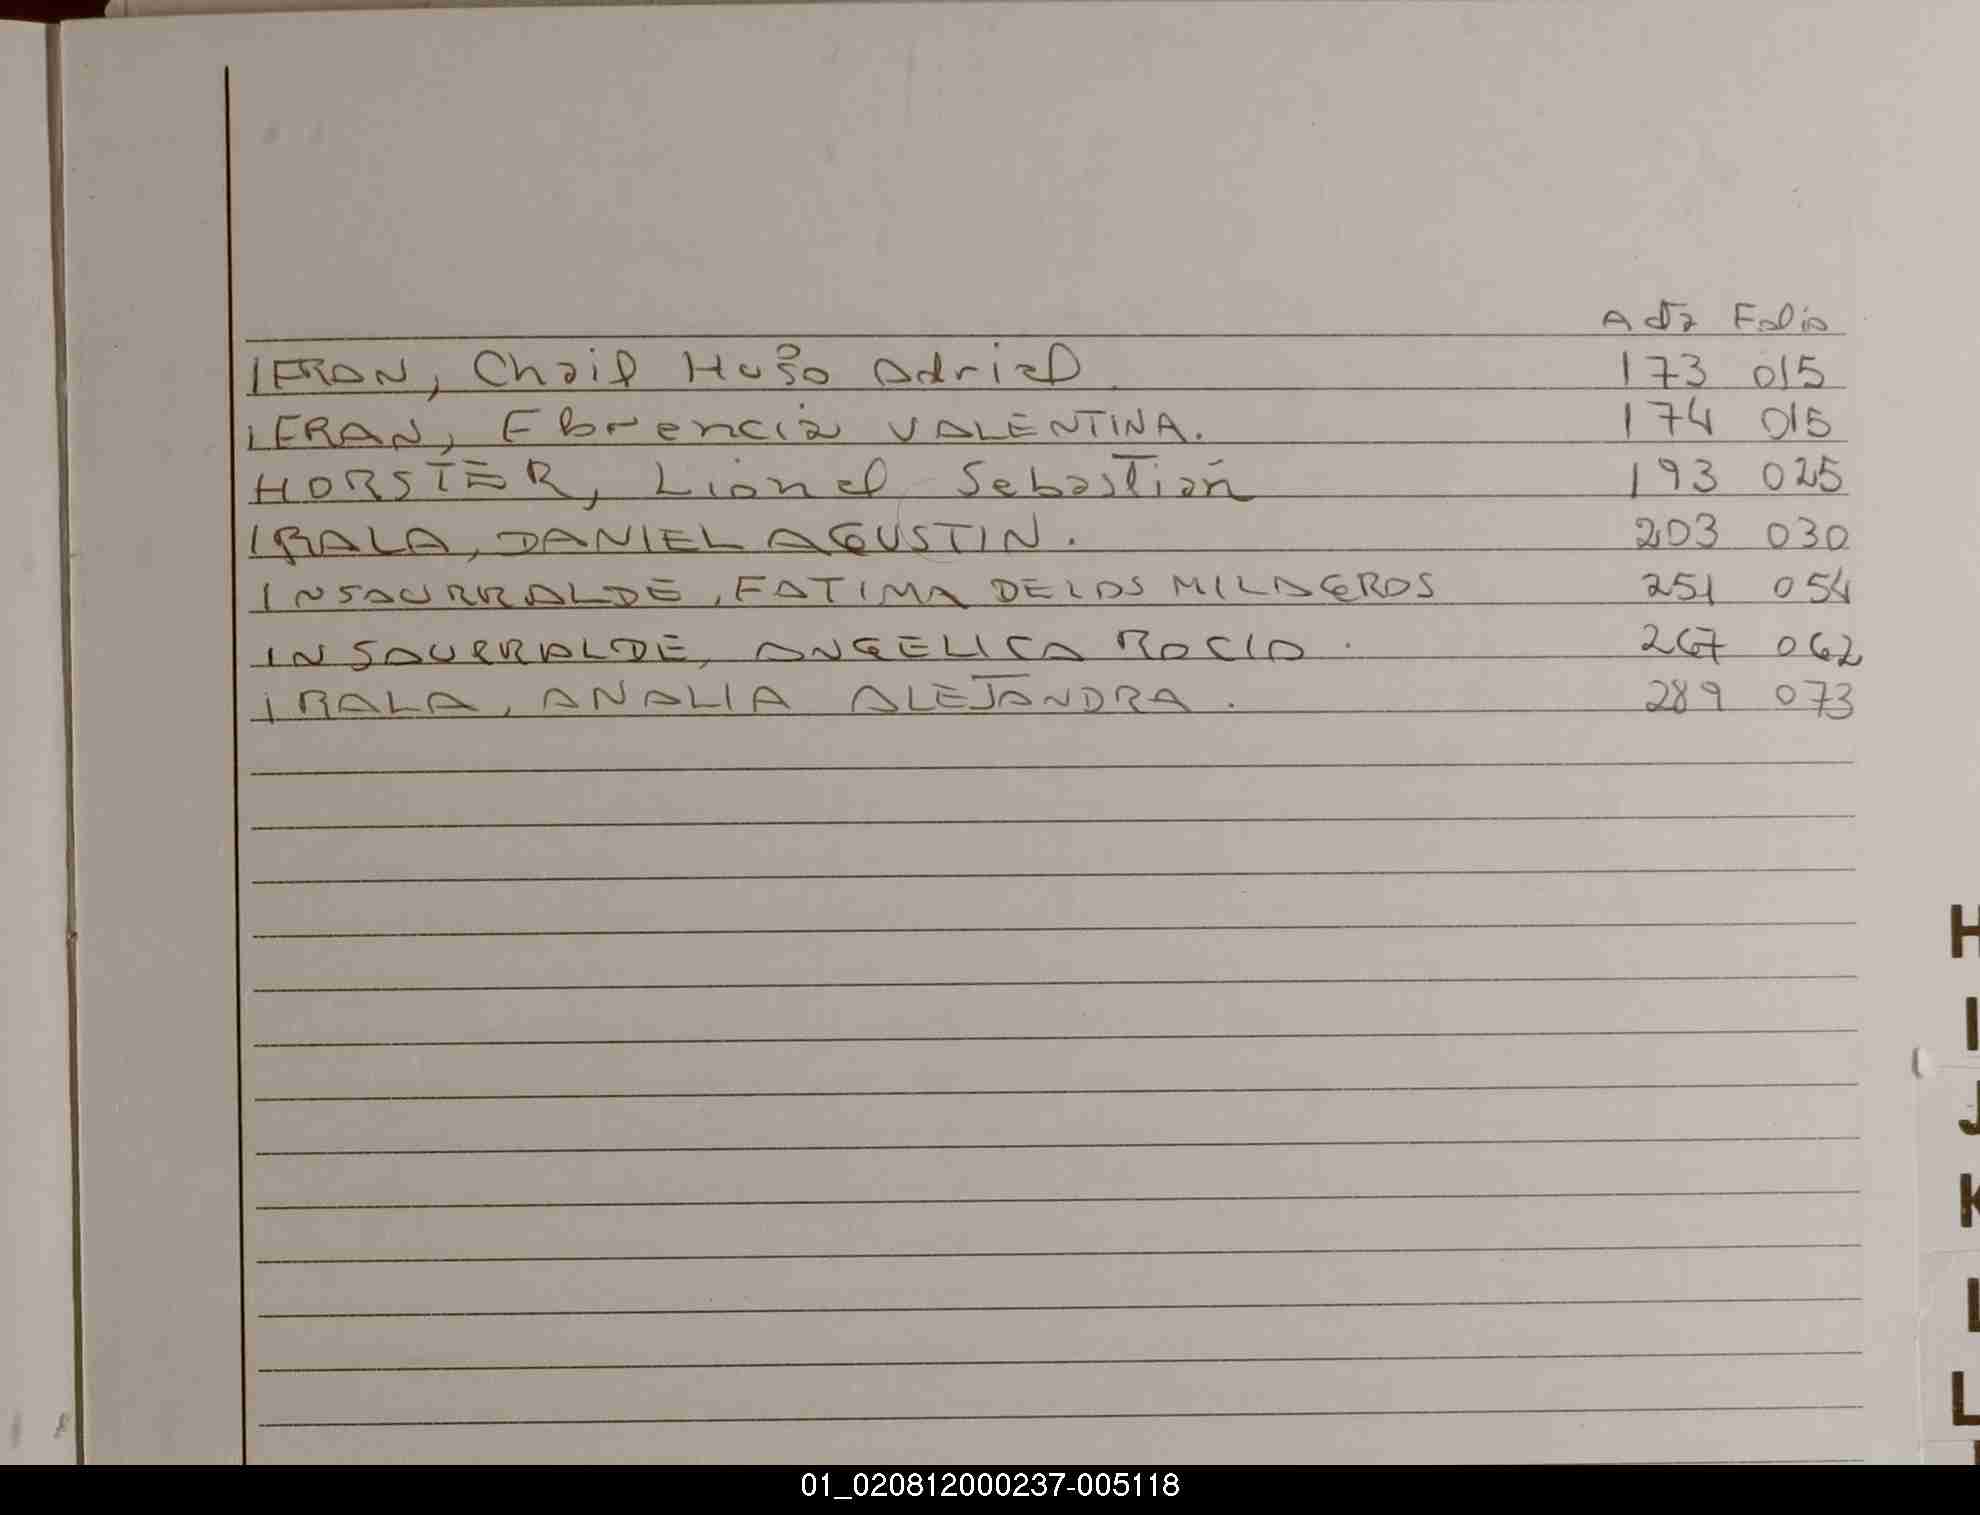 Acta Folio
IFRAN, Chail Hugo Adriel 173 015
IFRAN, Florencia VALENTINA. 174 015
HORSTER, Lionel Sebastian 193 025
IRALA, DANIEL AGUSTIN. 203 030
INSAURRALDE, FATIMA DE LOS MILAGROS 251 054
INSAURRALDE, ANGELICA ROCIO. 267 062
IRALA, ANALIA ALEJANDRA. 289 073
H
I
J
K
L
L
01_020812000237-005118